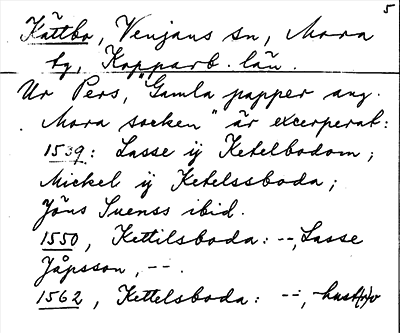 5
Kättbo, Venjans sn, Mora
by, Kopparb. län.
Ur Pers, "Gamla papper ang.
Mora socken" är excerperat:
1539: Lasse ij Ketelbodom;
Mickel ij Ketelssboda;
Jöns Suenss ibid.
1550, Kettilsboda: --, Lasse
Jåpsson, --.
1562, Kettelsboda: --,